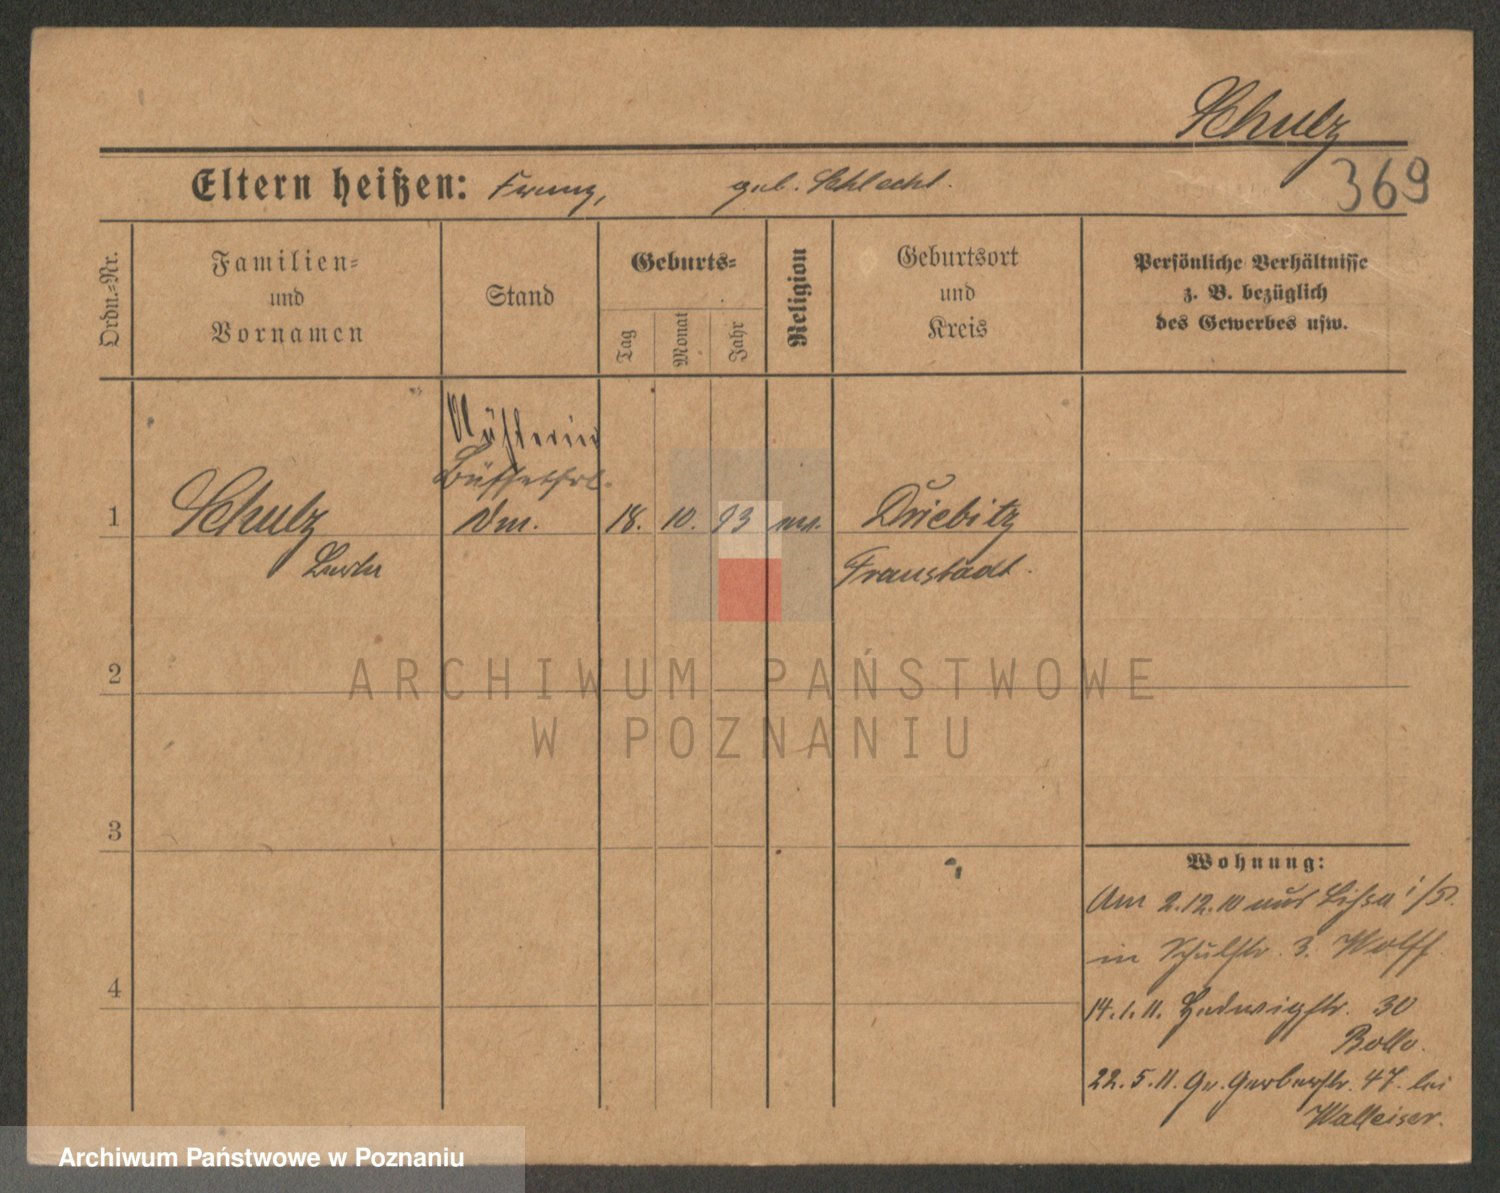 Schulz
369
Eltern heißen: Franz, geb. Schlecht.
Ordn.-Nr.
Familien- und Vornamen
Stand
Geburts-
Tag
Monat
Jahr
Religion
Geburtsort und Kreis
Persönliche Verhältnisse z. B. bezüglich des Gewerbes usw.
1
Schulz
Büffetfrl.
18. 10. 93
Driebitz
Fraustadt.
2
3
4
Wohnung:
Am 2.12.10 aus Lissa i/P.
in Schulstr. 3. Wolff.
14.1.11. Hedwigstr. 30
22.5.11. Gr. Gerberstr. 47 bei
Walleiser.
ARCHIWUM PAŃSTWOWE
W POZNANIU
Archiwum Państwowe w Poznaniu